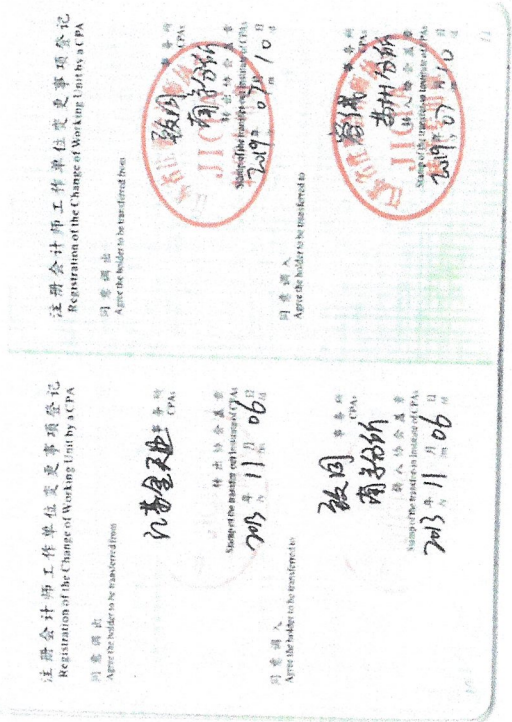 注册会计师工作单位变更事项登记
Registration of the Change of Working Unit by a CPA
同意调出
Agree the holder to be transferred from
江苏金天业 事务所
CPAs
转出协会盖章
Stamp of the transfer-out Institute of CPAs
2013年 11月 06日
/y /m /d
同意调入
Agree the holder to be transferred to
致同 事务所
南京分所 CPAs
转入协会盖章
Stamp of the transfer-in Institute of CPAs
2013年 11月 06日
/y /m /d
10
注册会计师工作单位变更事项登记
Registration of the Change of Working Unit by a CPA
同意调出
Agree the holder to be transferred from
致同 事务所
南京分所 CPAs
转出协会盖章
JICPA
Stamp of the transfer-out Institute of CPAs
2019年 07月 10日
同意调入
Agree the holder to be transferred to
事务所
苏州分所 CPAs
转入协会盖章
JICPA
Stamp of the transfer-in Institute of CPAs
2019年 07月 10日
11